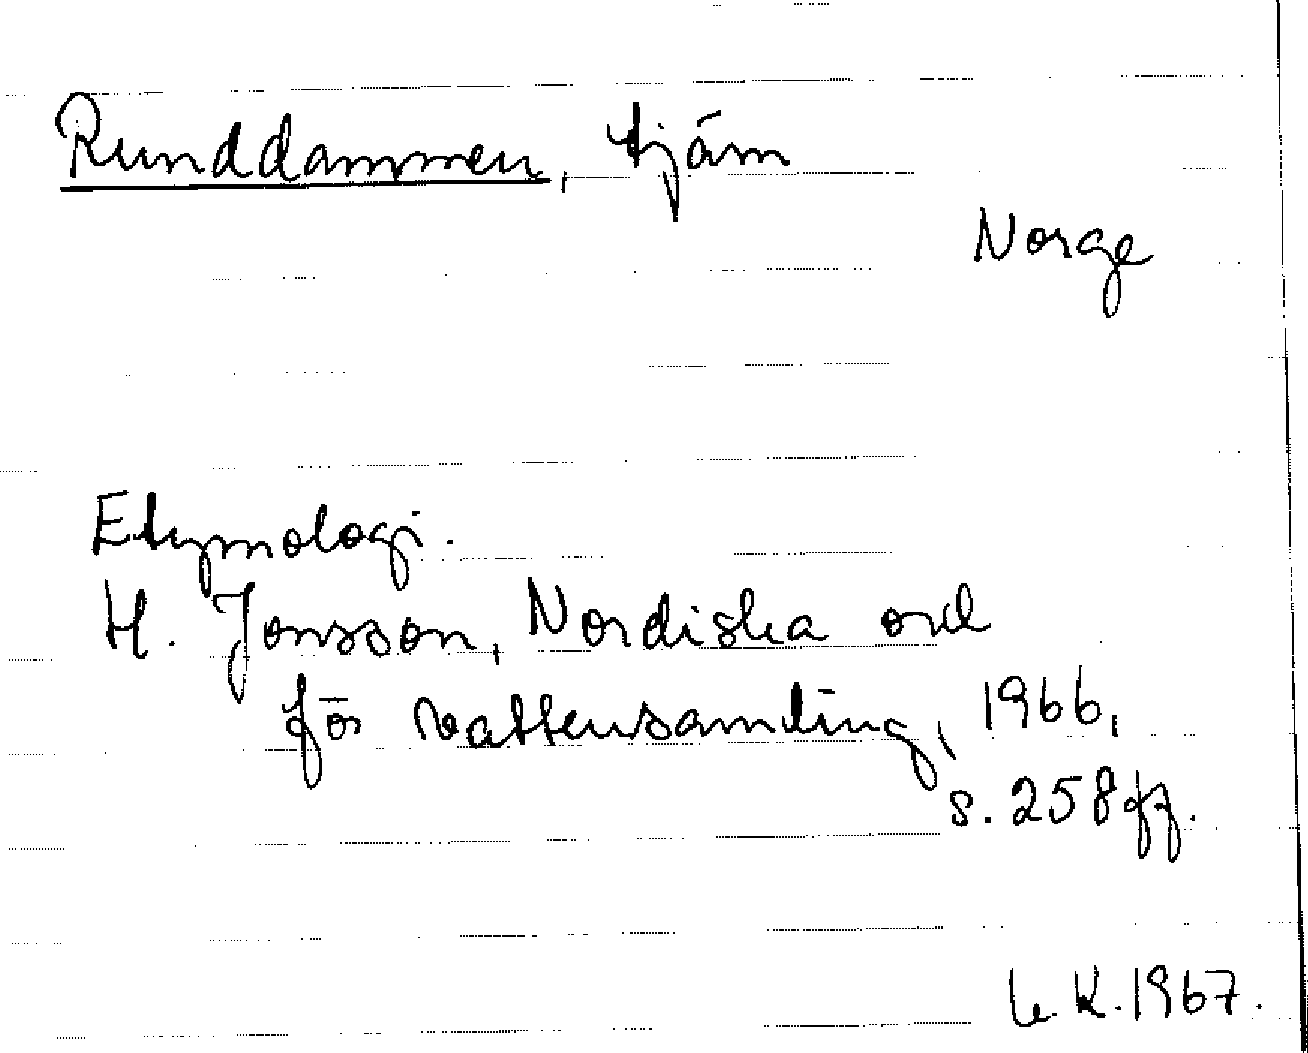 Runddammen, tjärn
Norge
Etymologi.
H. Jonsson, Nordiska ord
för vattensamling, 1966,
s. 258 ff.
K. 1967.